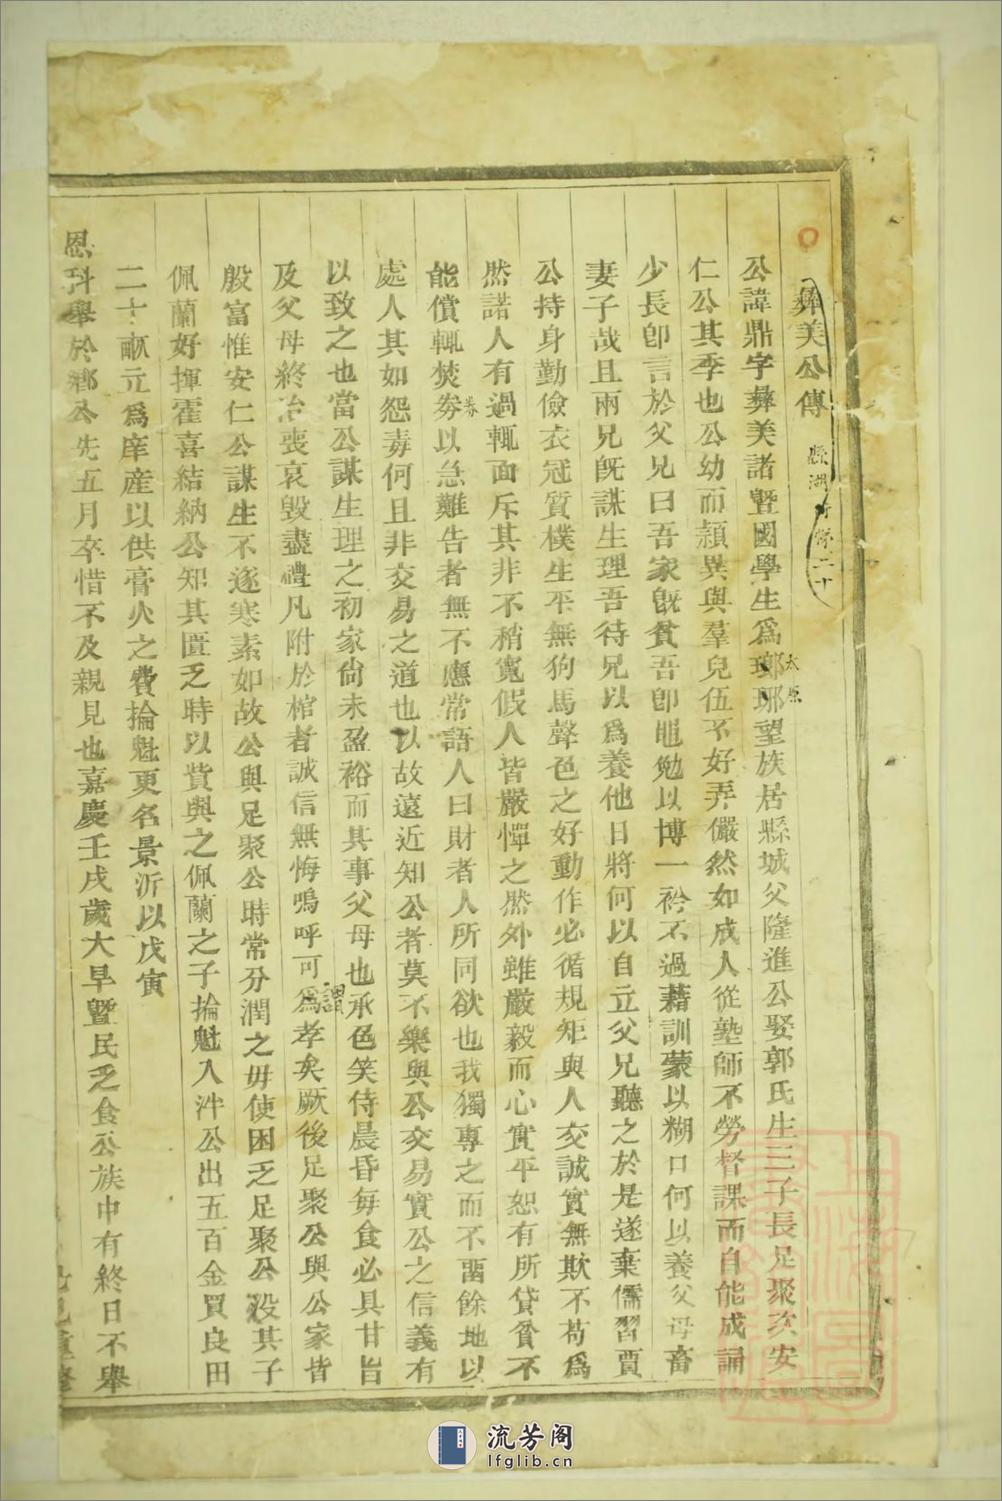 彝美公傳
公諱鼎字彝美諸暨國學生爲瑯琊望族居縣城父隆進公娶郭氏生三子長足聚次安
太原
仁公其季也公幼而頴異與羣兒伍不好弄儼然如成人從塾師不勞督課而自能成誦
少長卽言於父兄曰吾家旣貧吾卽黽勉以博一衿不過藉訓蒙以糊口何以養父母畜
妻子哉且兩兄旣謀生理吾待兄以爲養他日將何以自立父兄聽之於是遂棄儒習賈
公持身勤儉衣冠質樸生平無狗馬聲色之好動作必循規矩與人交誠實無欺不苟爲
然諾人有過輒面斥其非不稍寬假人皆嚴憚之然外雖嚴毅而心實平恕有所貸貧不
能償輒焚劵以急難告者無不應常語人曰財者人所同欲也我獨專之而不畱餘地以
券
處人其如怨毒何且非交易之道也以故遠近知公者莫不樂與公交易實公之信義有
以致之也當公謀生理之初家尙未盈裕而其事父母也承色笑侍晨昏每食必具甘旨
及父母終治喪哀毀盡禮凡附於棺者誠信無悔嗚呼可爲孝矣厥後足聚公與公家皆
謂
殷富惟安仁公謀生不遂寒素如故公與足聚公時常分潤之毋使困乏足聚公沒其子
佩蘭好揮霍喜結納公知其匱乏時以貲與之佩蘭之子掄魁入泮公出五百金買良田
二十畝元爲庠産以供膏火之費掄魁更名景沂以戊寅
恩科舉於鄕公先五月卒惜不及親見也嘉慶壬戌歲大旱暨民乏食公族中有終日不舉
流芳阁
lfglib.cn